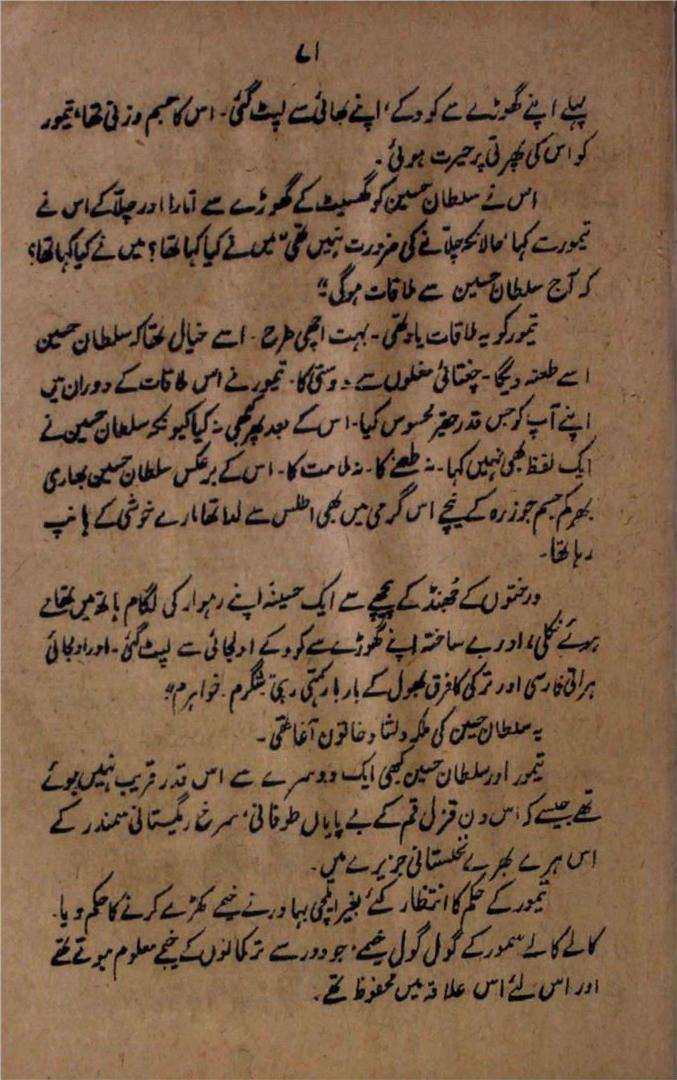 ۷۱
پہلے اپنے گھوڑے سے کود کے، اپنے بھائی سے لپٹ گئی۔ اس کا جسم وزنی تھا، تیمور
کو اس کی پھرتی پر حیرت ہوئی۔
اس نے سلطان حسین کو گھسیٹ کے گھوڑے سے اتارا اور چلّا کے اس نے
تیمور سے کہا حالانکہ چلّانے کی ضرورت نہیں تھی "میں نے کیا کہا تھا؟ میں نے کیا کہا تھا؟
کہ آج سلطان حسین سے ملاقات ہوگی"
تیمور کو یہ ملاقات یاد تھی۔ بہت اچھی طرح۔ اسے خیال تھا کہ سلطان حسین
اسے طعنہ دیگا۔ چغتائی مغلوں سے دوستی کا۔ تیمور نے اس ملاقات کے دوران میں
اپنے آپ کو جس قدر حقیر محسوس کیا۔ اس کے بعد پھر کبھی نہ کیا کیونکہ سلطان حسین نے
ایک لفظ بھی نہیں کہا۔ نہ طعنے کا۔ نہ ملامت کا۔ اس کے برعکس سلطان حسین بھاری
بھرکم جسم جو زرہ کے نیچے اس گرمی میں بھی اطلس سے لدا تھا مارے خوشی کے ہانپ
رہا تھا۔
درختوں کے جُھنڈ کے پیچھے سے ایک حسینہ اپنے رہوار کی لگام ہاتھ میں تھامے
ہوئے نکلی، اور بے ساختہ اپنے گھوڑے سے کود کے اولجائی سے لپٹ گئی۔ اور اولجائی
ہراتی فارسی اور ترکی کا فرق بھول کے بار بار کہتی رہی خواہرم"
یہ سلطان حسین کی ملکہ دلشاد خاتون آغا تھی۔
تیمور اور سلطان حسین کبھی ایک دوسرے سے اس قدر قریب نہیں ہوئے
تھے جیسے کہ اس دن قزل قم کے بے پایاں طوفانی، سرخ ریگستانی سمندر کے
اس ہرے بھرے نخلستانی جزیرے میں۔
تیمور کے حکم کا انتظار کئے بغیر ایلچی بہادر نے خیمے کھڑے کرنے کا حکم دیا۔
کالے کالے سمور کے گول گول خیمے، جو دور سے ترکمانوں کے خیمے معلوم ہوتے تھے
اور اس لئے اس علاقہ میں محفوظ تھے۔